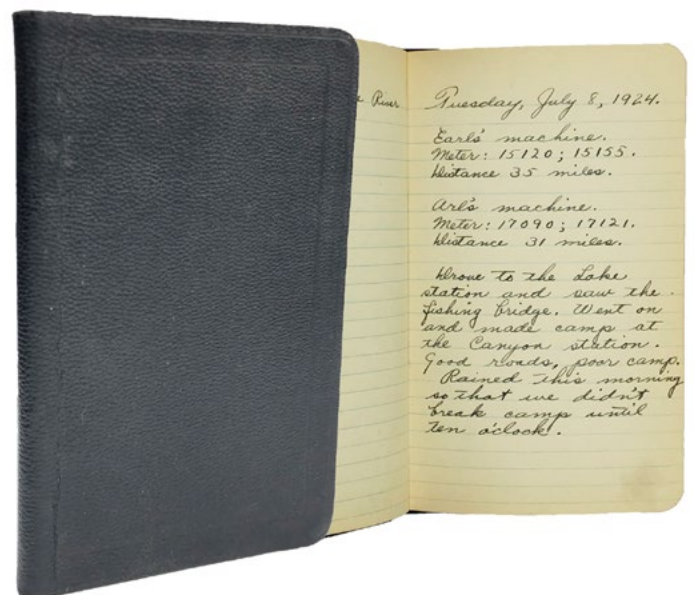 River
Tuesday, July 8, 1924.
Earl's machine.
Meter: 15120; 15155.
Distance 35 miles.
Art's machine.
Meter: 17090; 17121.
Distance 31 miles.
Drove to the Lake
station and saw the
fishing bridge. Went on
and made camp at
the Canyon station.
Good roads, poor camp.
Rained this morning
so that we didn't
break camp until
ten o'clock.